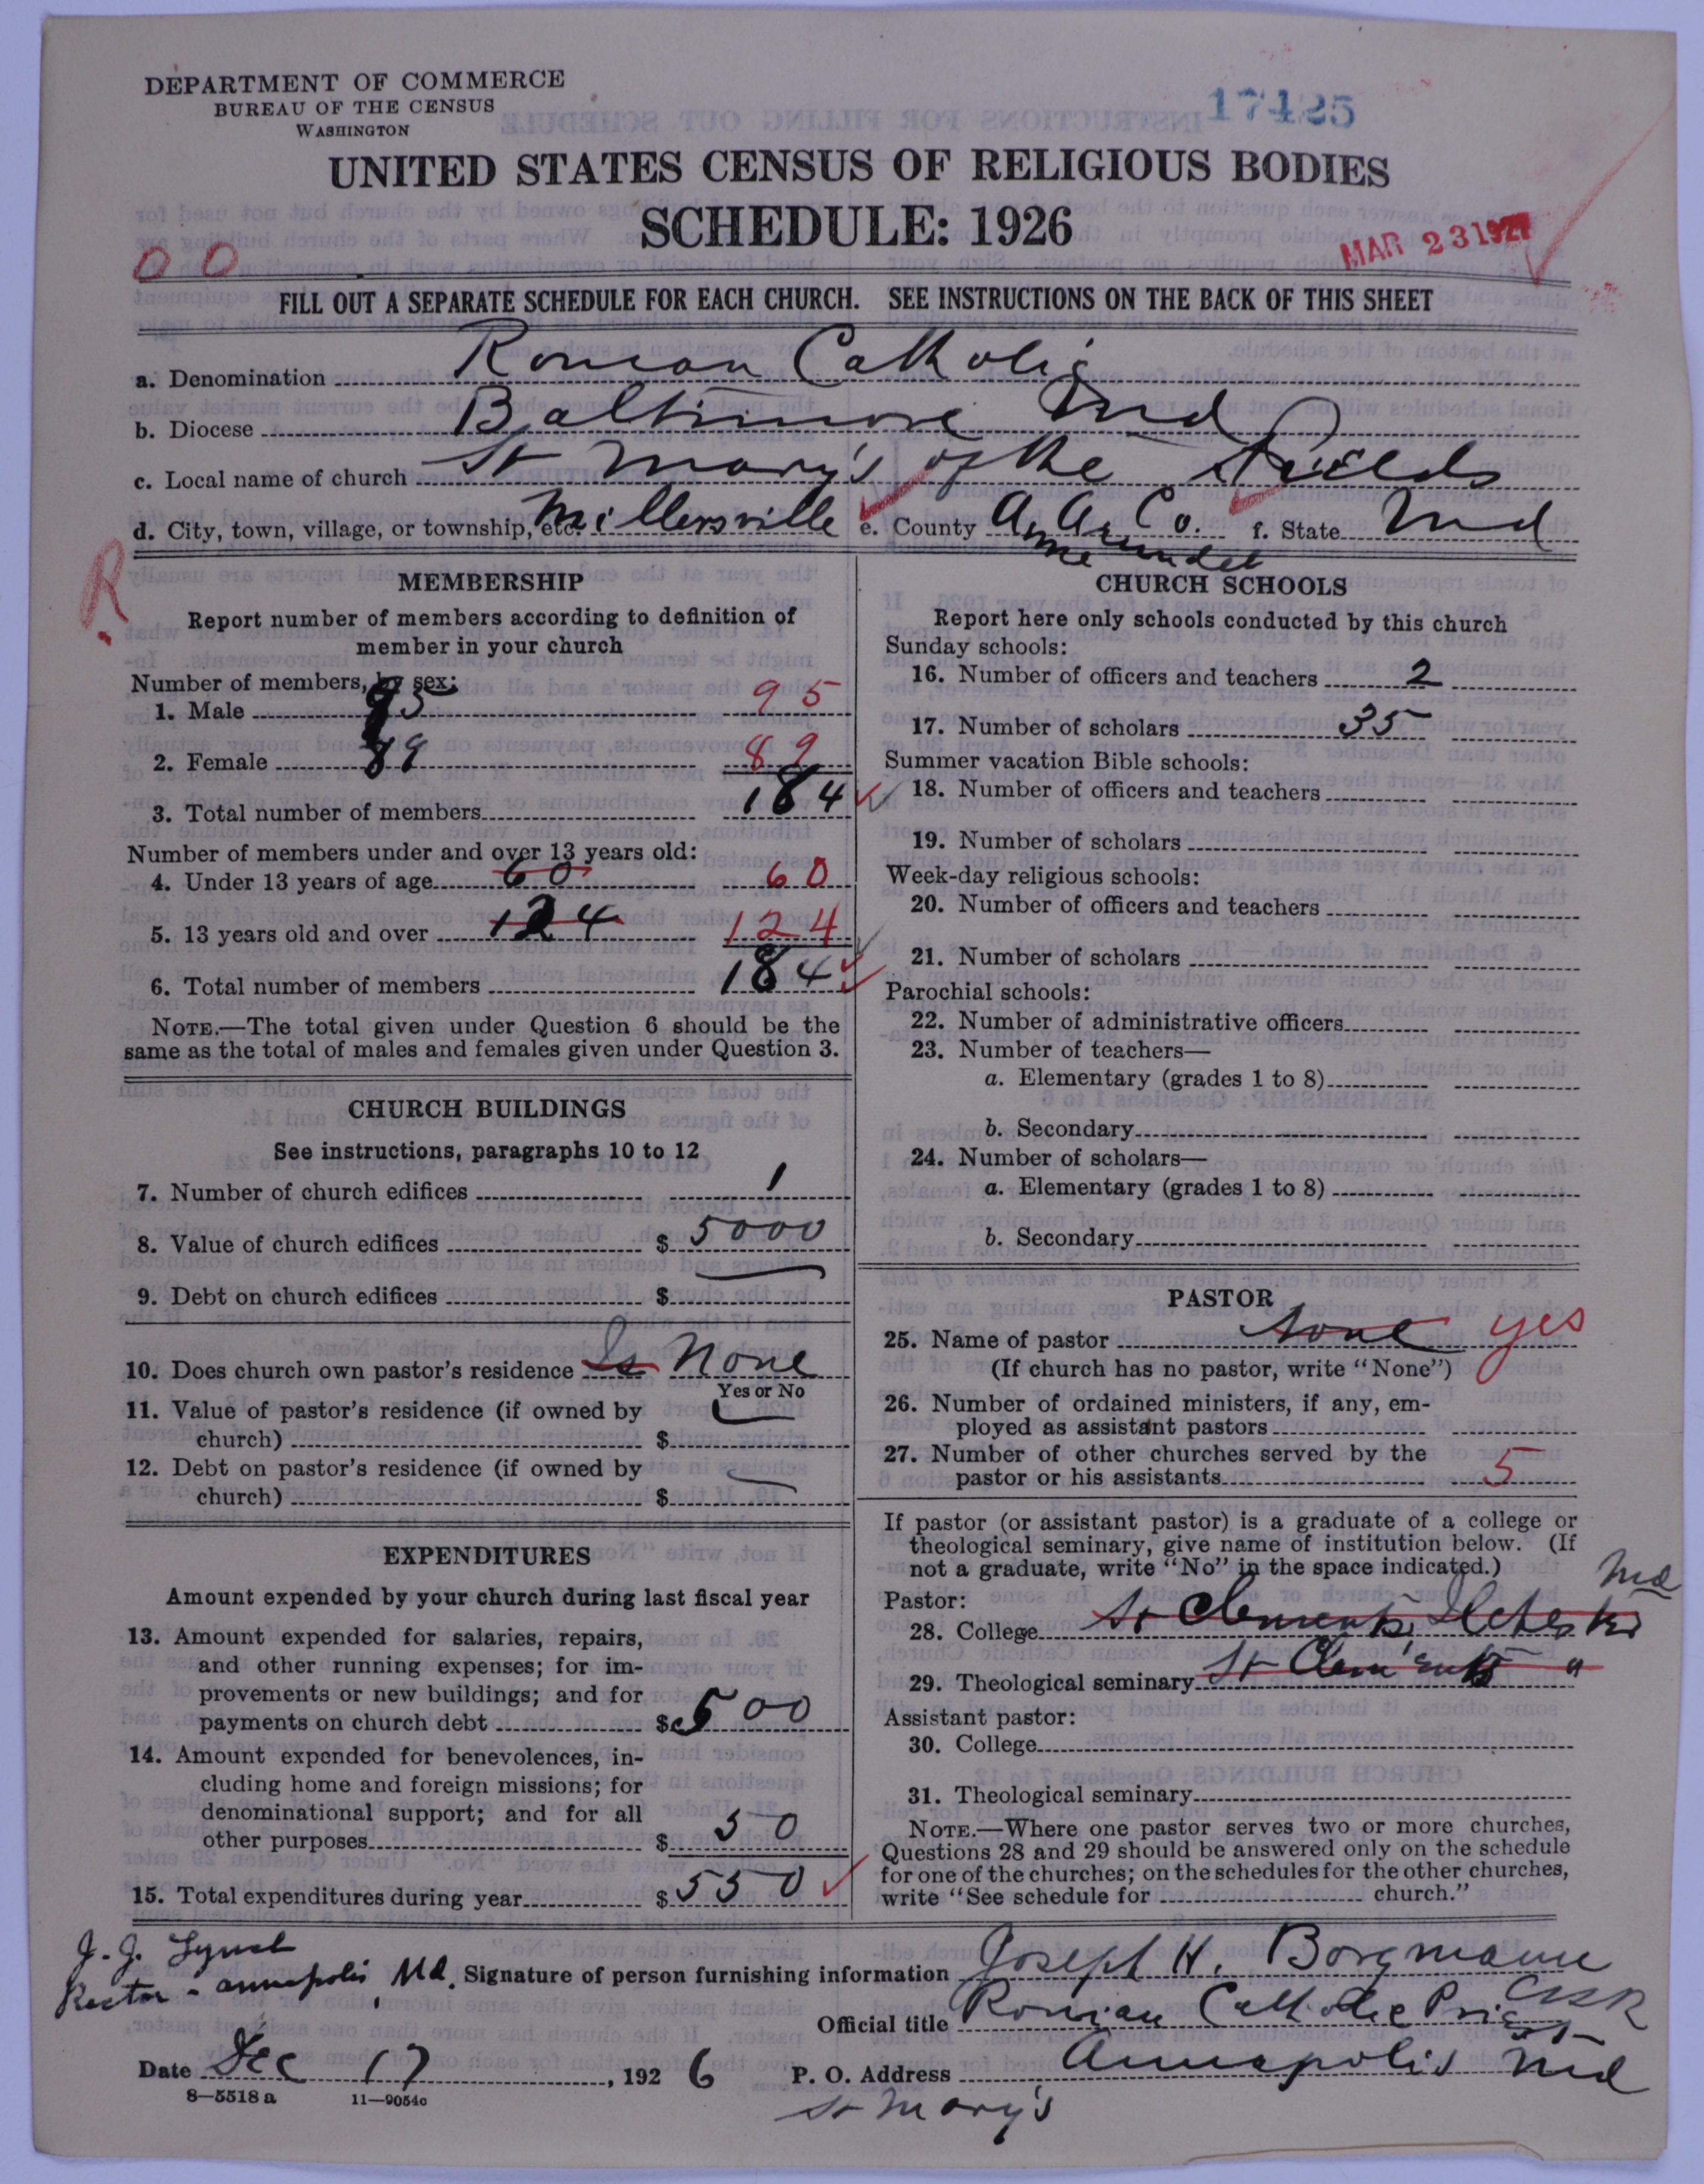 DEPARTMENT OF COMMERCE
BUREAU OF THE CENSUS
WASHINGTON
17425
UNITED STATES CENSUS OF RELIGIOUS BODIES
SCHEDULE: 1926
MAR 23 1927
0 0
FILL OUT A SEPARATE SCHEDULE FOR EACH CHURCH. SEE INSTRUCTIONS ON THE BACK OF THIS SHEET
a. Denomination Roman Catholic
b. Diocese Baltimore Md
c. Local name of church St Mary's of the Fields
d. City, town, village, or township, etc. Millersville e. County A. A. Co. f. State Md
Anne Arundel
R
MEMBERSHIP
Report number of members according to definition of
member in your church
Number of members, by sex:
1. Male 95 95
2. Female 89 89
3. Total number of members 184
Number of members under and over 13 years old:
4. Under 13 years of age 60 60
5. 13 years old and over 124 124
6. Total number of members 184
NOTE.—The total given under Question 6 should be the
same as the total of males and females given under Question 3.
CHURCH BUILDINGS
See instructions, paragraphs 10 to 12
7. Number of church edifices 1
8. Value of church edifices $ 5000
9. Debt on church edifices $
10. Does church own pastor's residence Is None
Yes or No
11. Value of pastor's residence (if owned by
church) $
12. Debt on pastor's residence (if owned by
church) $
EXPENDITURES
Amount expended by your church during last fiscal year
13. Amount expended for salaries, repairs,
and other running expenses; for im-
provements or new buildings; and for
payments on church debt $ 500
14. Amount expended for benevolences, in-
cluding home and foreign missions; for
denominational support; and for all
other purposes $ 50
15. Total expenditures during year $ 550
CHURCH SCHOOLS
Report here only schools conducted by this church
Sunday schools:
16. Number of officers and teachers 2
17. Number of scholars 35
Summer vacation Bible schools:
18. Number of officers and teachers
19. Number of scholars
Week-day religious schools:
20. Number of officers and teachers
21. Number of scholars
Parochial schools:
22. Number of administrative officers
23. Number of teachers—
a. Elementary (grades 1 to 8)
b. Secondary
24. Number of scholars—
a. Elementary (grades 1 to 8)
b. Secondary
PASTOR
25. Name of pastor None yes
(If church has no pastor, write "None")
26. Number of ordained ministers, if any, em-
ployed as assistant pastors
27. Number of other churches served by the
pastor or his assistants 5
If pastor (or assistant pastor) is a graduate of a college or
theological seminary, give name of institution below. (If
not a graduate, write "No" in the space indicated.)
Pastor: Md
28. College St Clements, Ilchester
29. Theological seminary St Clements "
Assistant pastor:
30. College
31. Theological seminary
NOTE.—Where one pastor serves two or more churches,
Questions 28 and 29 should be answered only on the schedule
for one of the churches; on the schedules for the other churches,
write "See schedule for church."
J. J. Lynch
Rector - Annapolis, Md.
Signature of person furnishing information Joseph H. Borgmann
CSSR
Official title Roman Catholic Priest
Date Dec 17, 1926 P. O. Address Annapolis Md
8—5518 a 11—9054c
St Mary's